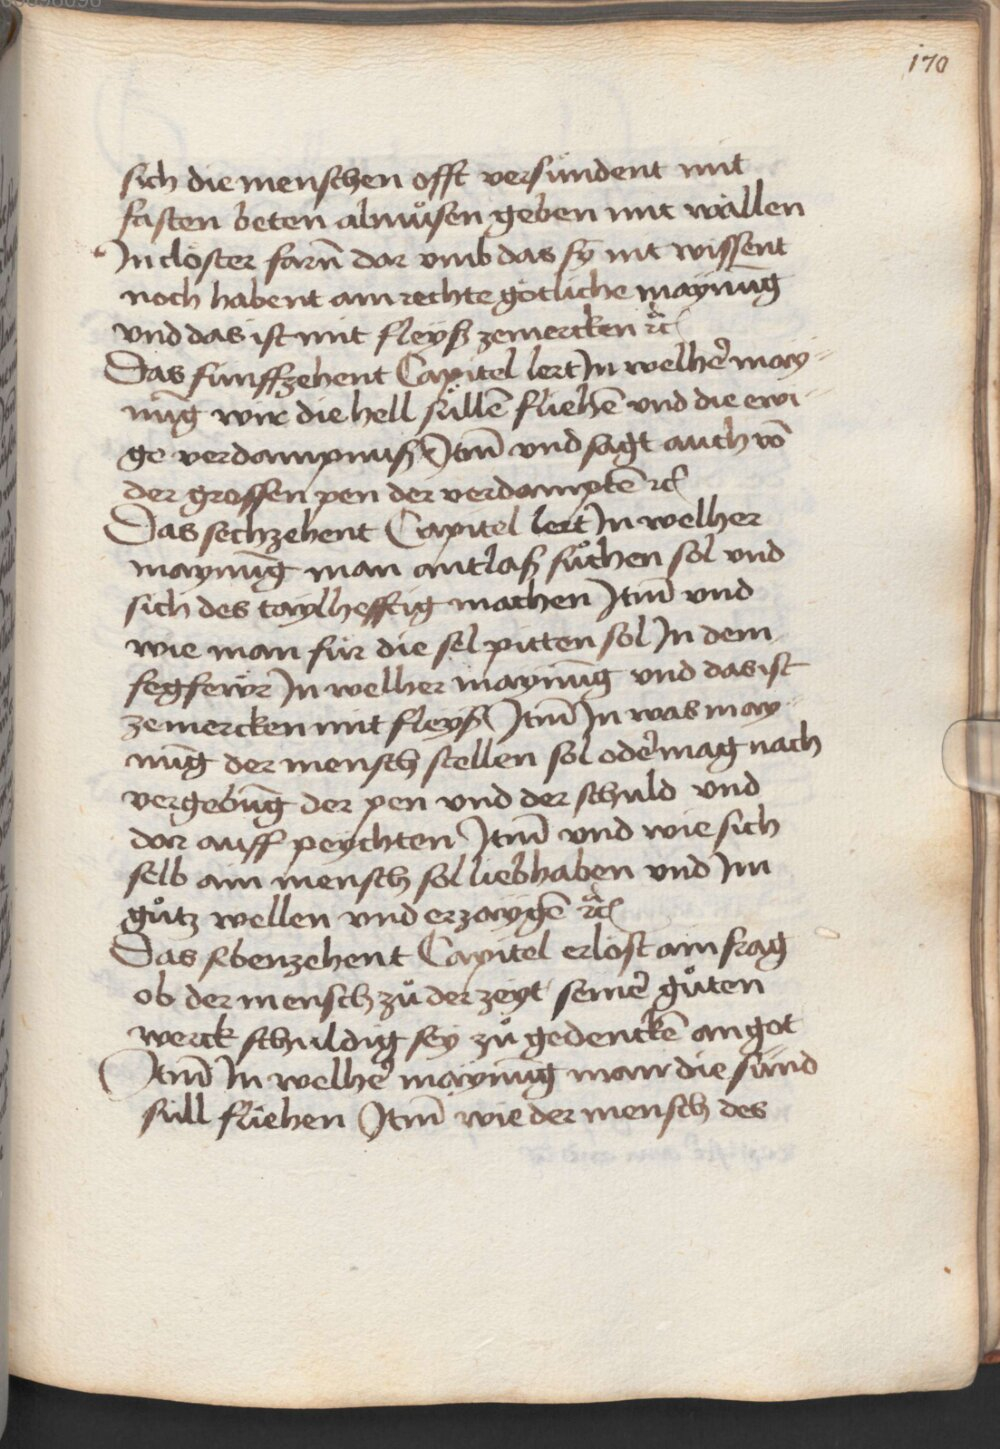 170
sich die menschen offt versündent mit
fasten beten almůsen geben mit wallen
In clöster farn̄ dar vmb das sy̋ nit wissent
noch habent ain rechte götliche maynūg
vnd das ist mit fleyß zemercken ꝛc̄
Das funffzehent Capitel lert In welhe᷑ may-
nūg wir die hell süllē fliehē vnd die ewi-
ge verdampnuß Itm̄ vnd sagt auch vō
der grossen pen der verdamptē ꝛc̄
Das sechzehent Capitel lert In welher
maynūg man antlaß sůchen sol vnd
sich des taylhefftig machen Itm̄ vnd
wie man für die sel pitten sol In dem
fegfewr In welher maynūg vnd das ist
zemercken mit fleyß Itm̄ In was may-
nūg der mensch stellen sol ode᷑ mag nach
vergebūg der pen vnd der schuld vnd
dar auff peychten Itm̄ vnd wie sich
selb ain mensch sol liebhaben vnd Im
gůtz wellen vnd erzaygē ꝛc̄
Das sibenzehent Capitel erlöst ain frag
ob der mensch zů der zeyt seine᷑ gůten
werck schuldig sey zů gedenckē an got
Itm̄ In welhe᷑ maynūg man die sünd
süll fliehen Itm̄ wie der mensch des